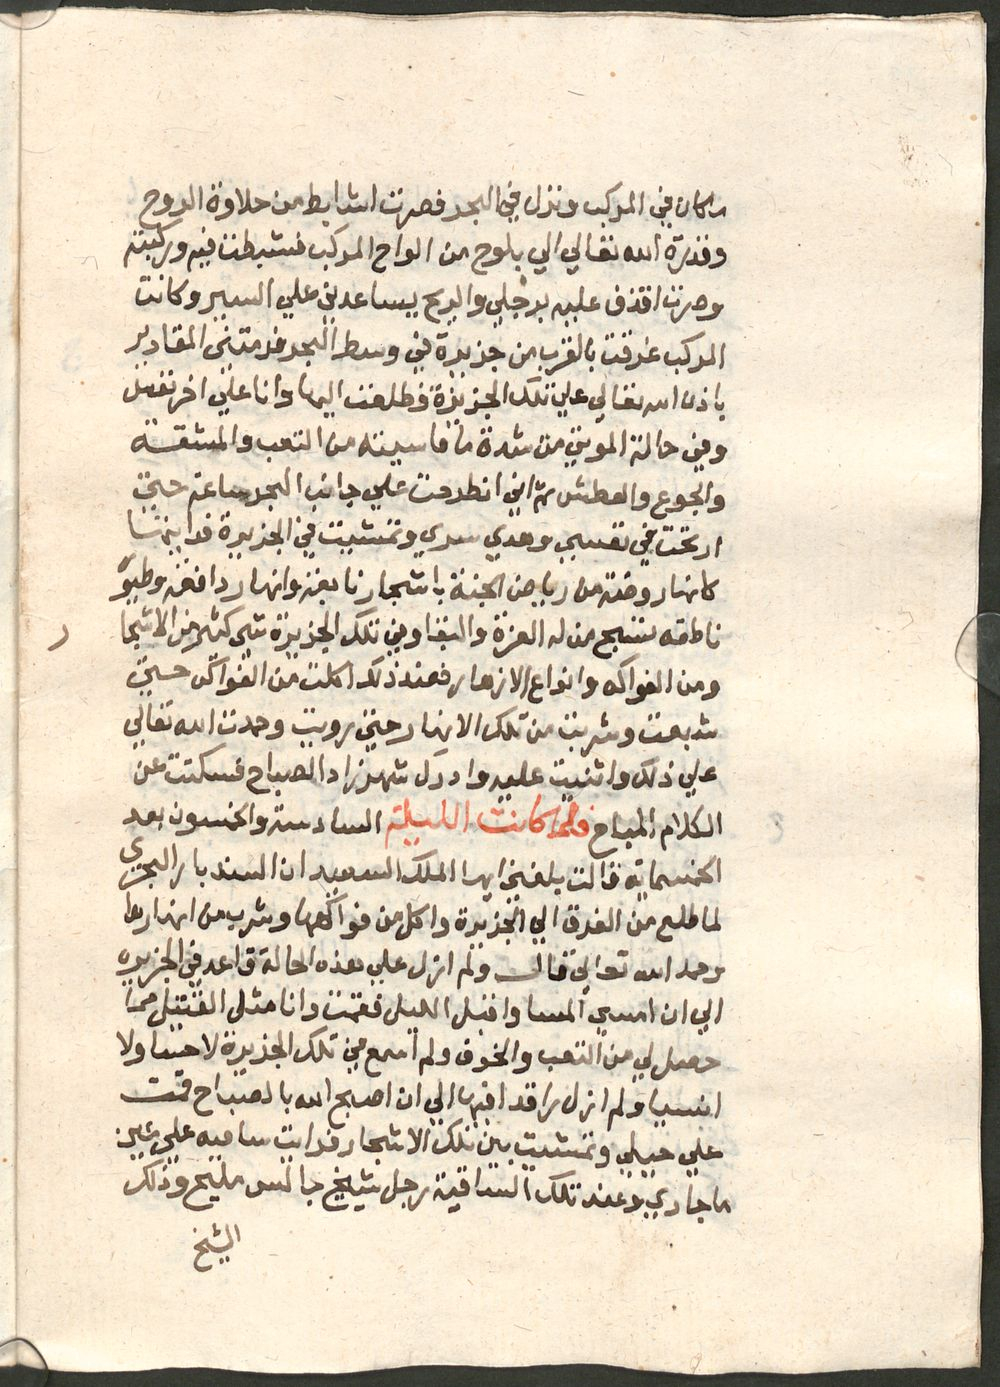 ما كان في المركب ونزل في البحر فصرت اشابط من حلاوة الروح
وقدرة الله تعالي الي بلوح من الواح المركب فشبطت فيه وركبته
وصرت اقذف عليه برجلي والريح يساعدني علي السير وكانت
المركب غرقت بالقرب من جزيرة في وسط البحر فرمتني المقادير
باذن الله تعالي علي تلك الجزيرة فطلعت اليها وانا علي اخر نفس
وفي حالة الموتي من شدة ما قاسيته من التعب والمشقة
والجوع والعطش ثم اني انطرحت علي جانب البحر ساعة حتي
ارتحت في نفسي وهدي سري وتمشيت في الجزيرة فرايتها
كانها روضة من رياض الجنة باشجار نابعة وانهار دافقة وطيو
ناطقه تسبح من له العزة والبقا وفي تلك الجزيرة شي كثير من الاشجا
ر
ومن الفواكه وانواع الازهار فعند ذلك اكلت من الفواكه حتي
شبعت وشربت من تلك الانهار حتي رويت وحمدت الله تعالي
علي ذلك واثنيت عليه وادرك شهرزاد الصباح فسكتت عن
الكلام المباح فلما كانت الليلة السادسة والخمسون بعد
الخمسماية قالت بلغني ايها الملك السعيد ان السندباد البحري
لما طلع من الغرق الي الجزيرة واكل من فواكهها وشرب من انهارها
وحمد الله تعالي قال ولم ازل علي هذه الحالة قاعد في الجزيره
الي ان امسي المسا واقبل الليل فقمت وانا مثل القتيل مما
حصل لي من التعب والخوف ولم اسمع في تلك الجزيرة لا حسا ولا
انسيا ولم ازل راقدا فيها الي ان اصبح الله بالصباح قمت
علي حيلي وتمشيت بين تلك الاشجار فرايت ساقيه علي عين
ما جاري وعند تلك الساقية رجل شيخ جالس مليح وذلك
الشيخ